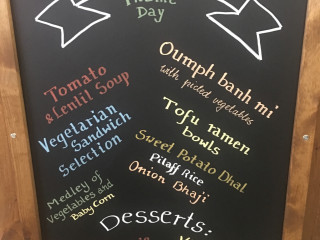 Day
Tomato
& Lentil Soup
Vegetarian
Sandwich
Selection
Medley of
Vegetables and
Baby Corn
Oumph banh mi
with pickled vegetables
Tofu ramen
bowls
Sweet Potato Dhal
Pilaff Rice
Onion Bhaji
Desserts: